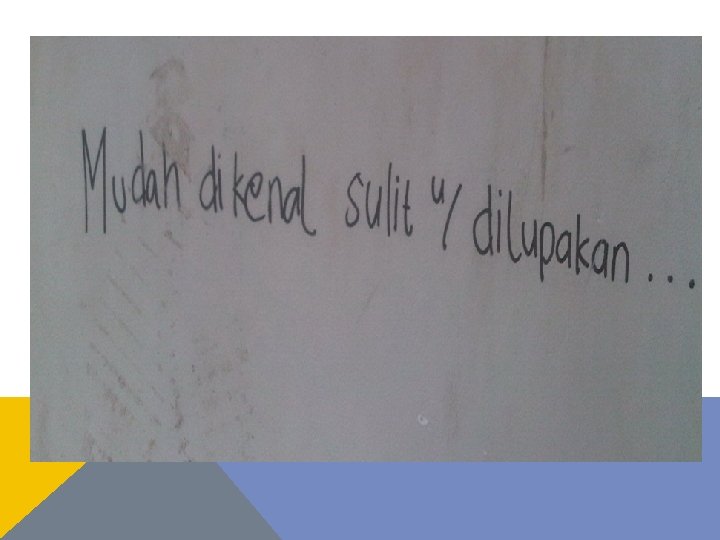 Mudah dikenal sulit u/ dilupakan...